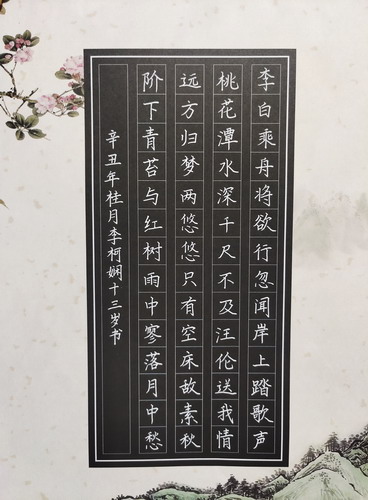 李白乘舟将欲行忽闻岸上踏歌声
桃花潭水深千尺不及汪伦送我情
远方归梦两悠悠只有空床敌素秋
阶下青苔与红树雨中寥落月中愁
辛丑年桂月李柯娴十三岁书